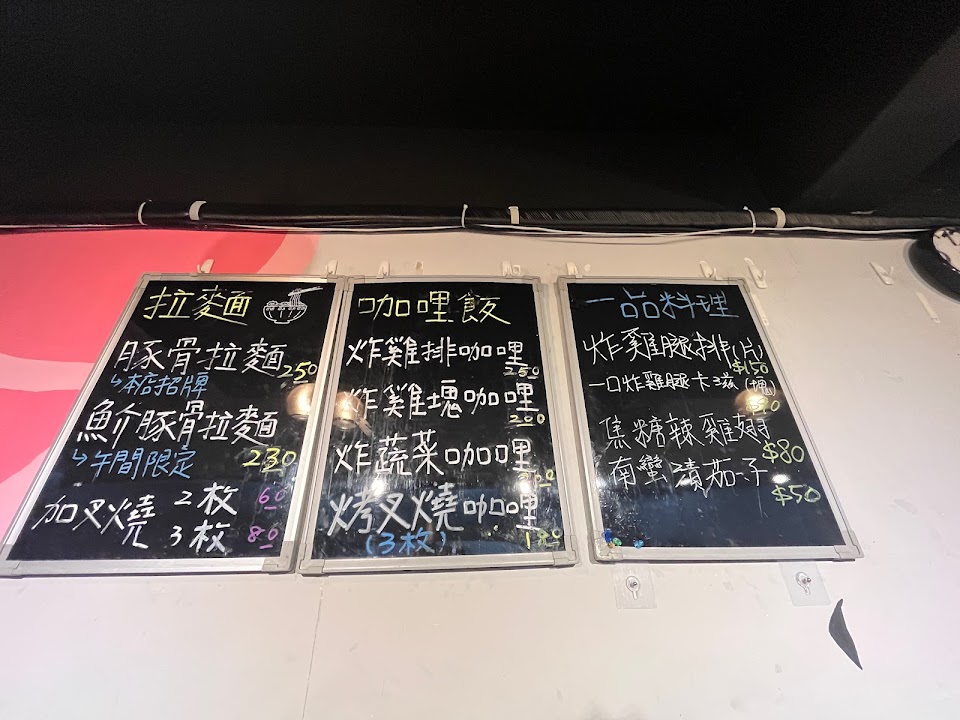 拉麵
豚骨拉麵 250
↳本店招牌
魚介豚骨拉麵
↳午間限定 230
加叉燒 2枚 60
3枚 80
咖哩飯
炸雞排咖哩
250
炸雞塊咖哩
200
炸蔬菜咖哩
烤叉燒咖哩
(3枚) 180
一品料理
炸雞腿排(片)
$150
一口炸雞腿卡滋(塊)
焦糖辣雞翅
$80
南蠻漬茄子
$50